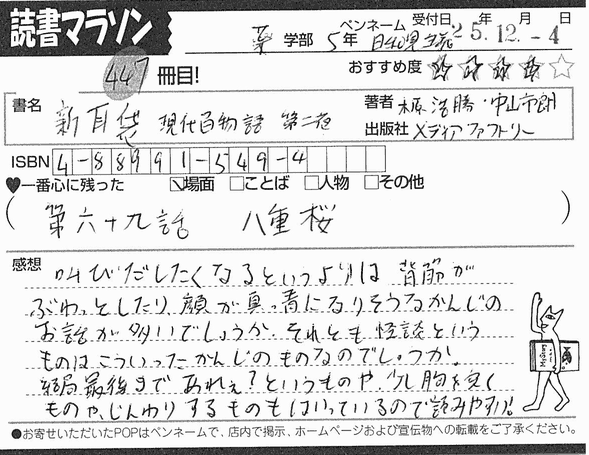 読書マラソン
薬 学部 5年 ペンネーム 受付日 25年12.月-4日
447 冊目! おすすめ度 ★★★★☆
書名 新耳袋 現代百物語 第二夜 著者 木原浩勝・中山市朗
出版社 メディアファクトリー
ISBN 4-88991-549-4
♥一番心に残った ☑場面 □ことば □人物 □その他
( 第六十九話 八重桜 )
感想 叫びだしたくなるというよりは 背筋が
ぶわっとしたり、顔が真っ青になりそうなかんじの
お話が多いでしょうか。それとも怪談という
ものはこういったかんじのものなのでしょうか。
結局最後まであれぇ?というものや、少し胸を突く
ものや、じんわりするものもはいっているので読みやすい。
●お寄せいただいたPOPはペンネームで、店内で掲示、ホームページおよび宣伝物への転載をご了承ください。